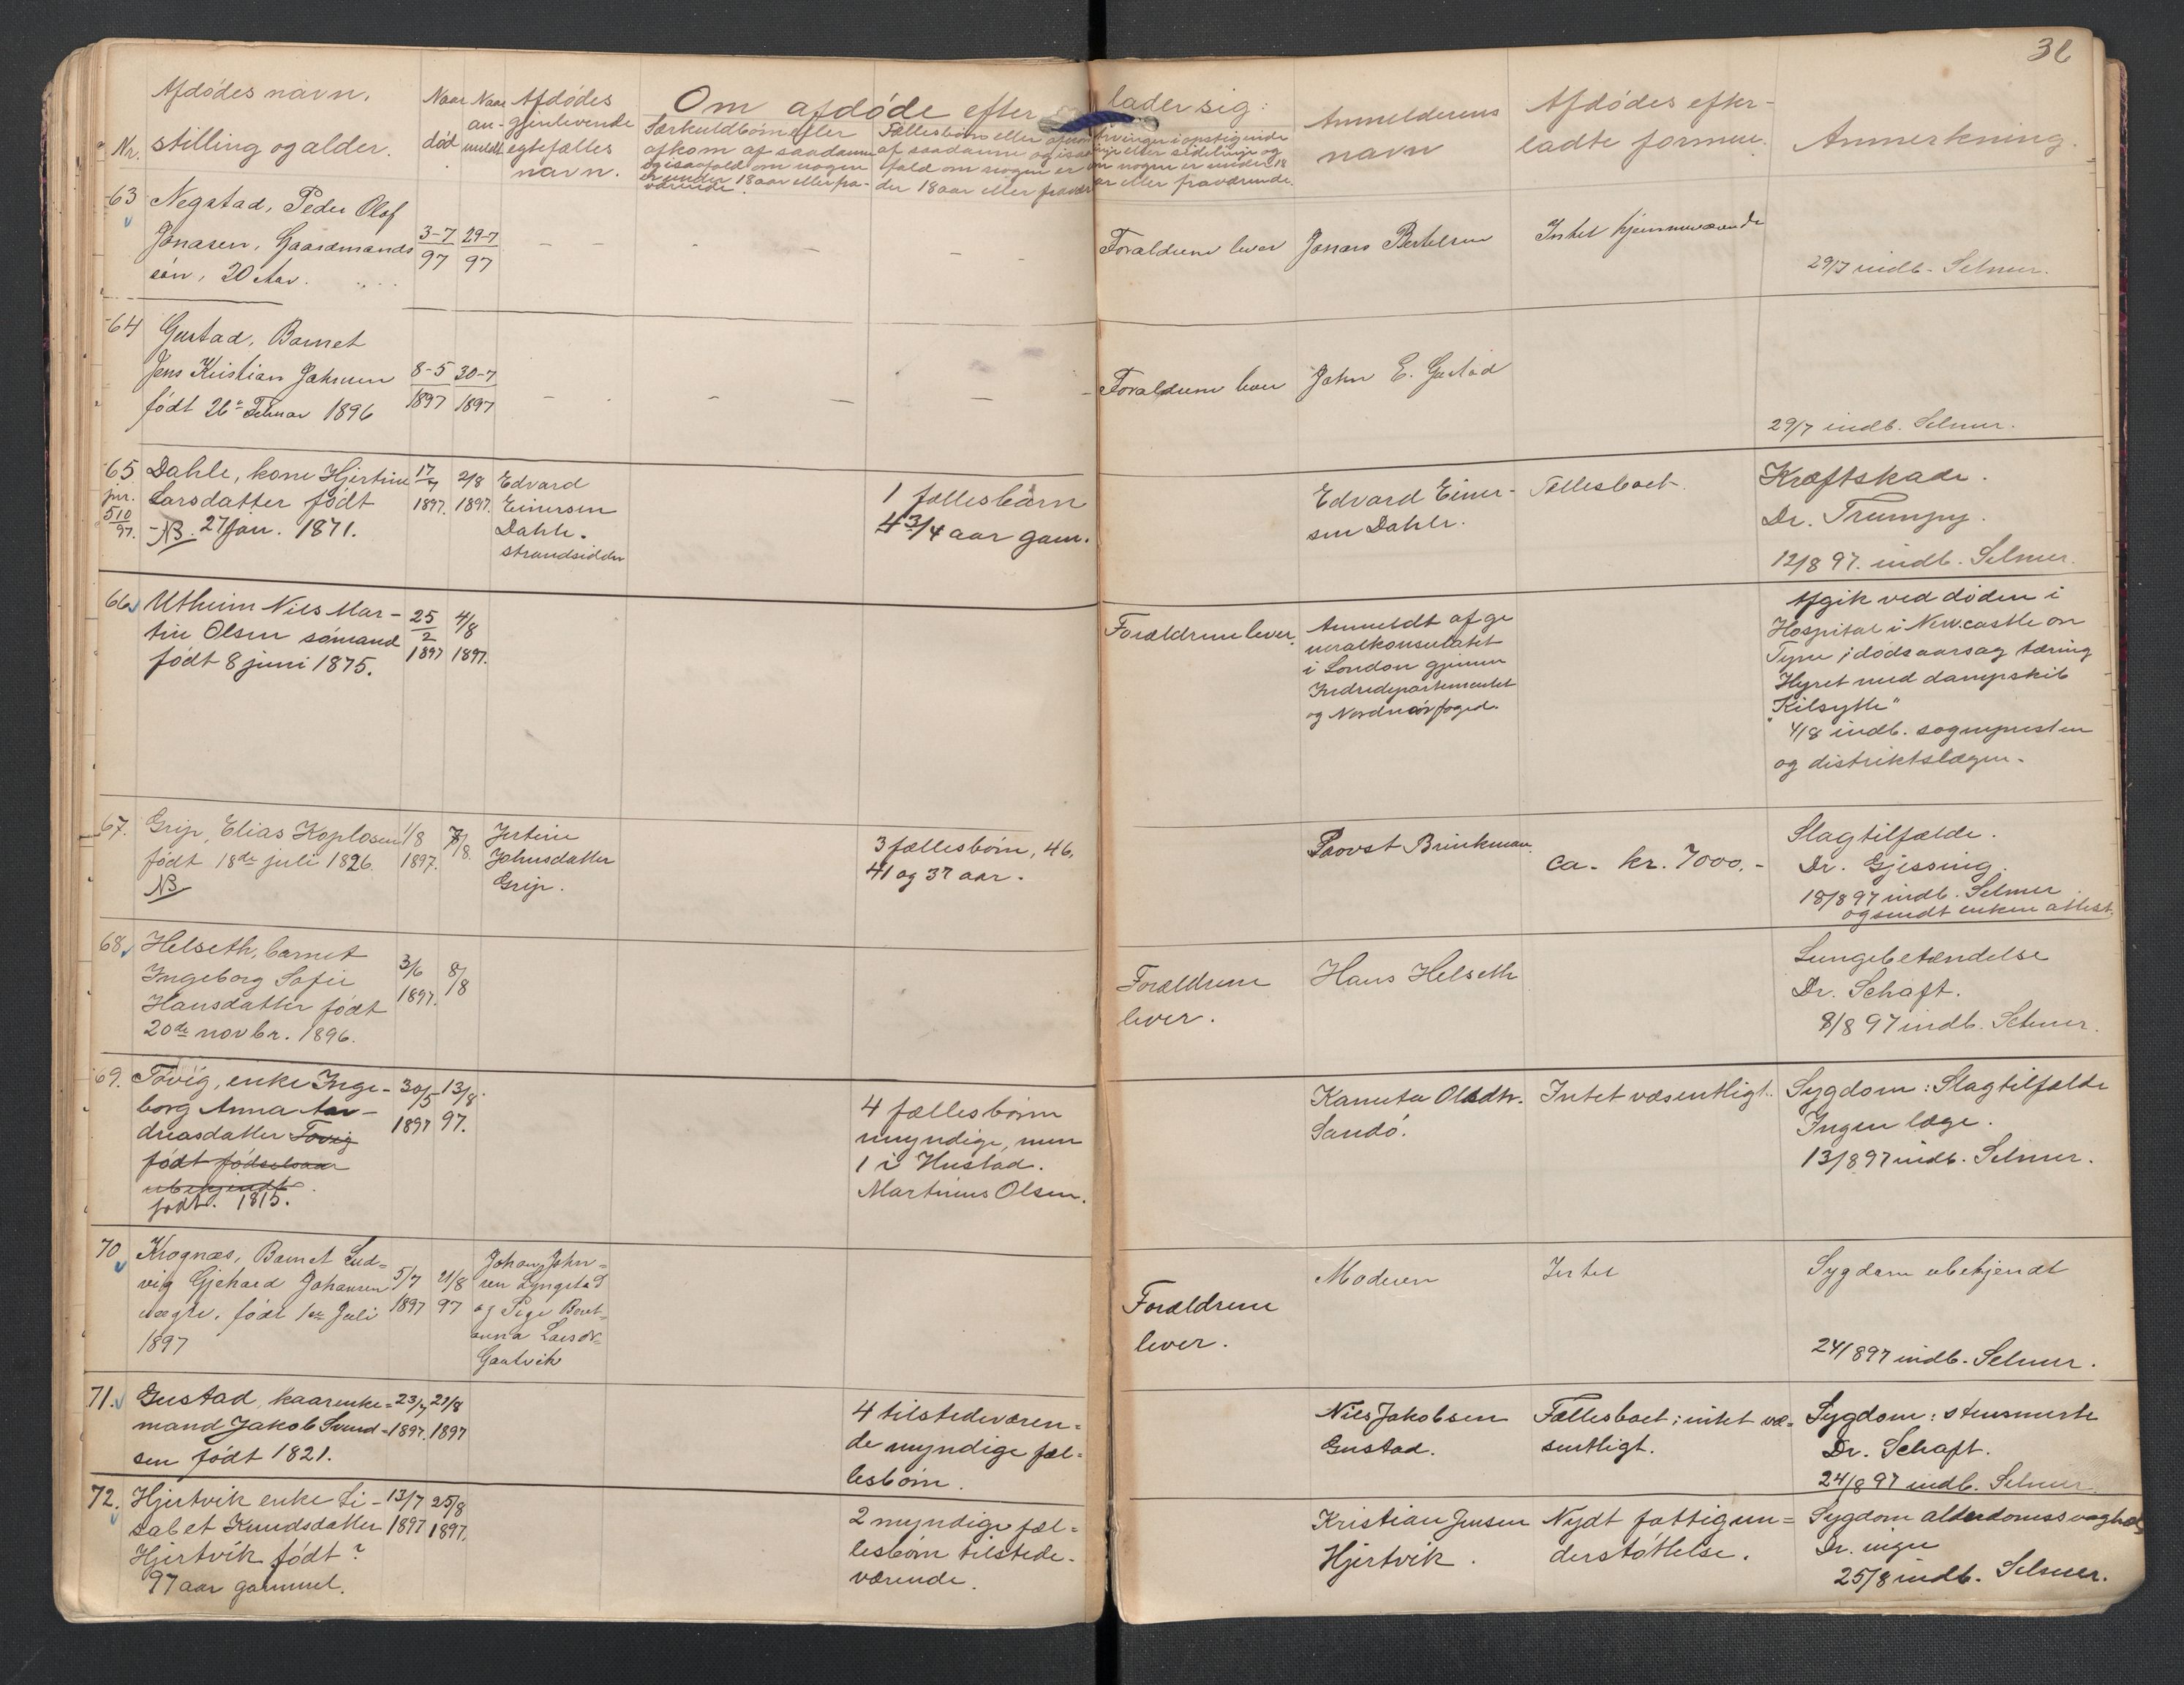 36
Afdödes navn,
Nr. stilling og alder.
Naar död
Naar anmeldt
Afdödes gjenlevende egtefælles navn.
Om afdöde efterlader sig:
Særkuldbörn eller afkom af saadanne og isaafald om nogen er under 18 aar eller fraværende.
Fællesbörn eller afkom af saadanne og isaafald om nogen er under 18 aar eller fraværende
Arvinger i opstigende linje eller sidelinje og om nogen er under 18 aar eller fraværende.
Anmelderens navn
Afdödes efterladte formue.
Anmerkning.
63 Negstad, Peder Olaf
Jonasen, Gaardmands
sön, 20 Aar.
3-7 97
29-7 97
Forældrene lever
Jonas Bertelsen
Intet hjemmeværende
29/7 indb. Selmer.
64 Gustad, Barnet
Jens Kristian Johnsen
født 26de Febuar 1896
8-5 1897
30-7 1897
Forældrene lever
John E. Gustad
29/7 indb. Selmer.
65 Dahle, kone Hjertine
jnr. Larsdatter født
510/97. NB. 27 Jan. 1871.
17/7 1897.
2/8 1897.
Edvard
Einersen
Dahle.
strandsidder
1 fællesbarn
4 3/4 aar gam.
Edvard Einer-
sen Dahle.
Fællesboet.
Kræftskade.
Dr. Trumpy.
12/8 97. indb. Selmer.
66 Utheim Nils Mar-
tin Olsen sömand
født 8 juni 1875.
25/2 1897
4/8 1897.
Forældrene lever.
Anmeldt af ge
neralkonsulatet
i London gjennem
Indredepartementet
og Nordmör foged.
Afgik ved döden i
Hospital i Newcastle on
Tyne; dödsaarsag tæring
Hyret med dampskib
"Kilsyth"
4/8 indb. sognepresten
og distriktslægen.
67. Grip, Elias Koplosen
født 18de juli 1826.
NB
1/8 1897.
7/8.
Jertine
Johnsdatter
Grip.
3 fællesbörn, 46,
41 og 37 aar.
Provst Brinkman.
ca. kr. 7000.-
Slagtilfælde.
Dr. Gjessing.
18/8 97 indb. Selmer
og sendt enken attest.
68. Helseth, barnet
Ingeborg Sofie
Hansdatter født
20de novbr. 1896.
3/6 1897.
8/8
Forældrene
lever.
Hans Helseth
Lungebetændelse
Dr. Schaft.
8/8 97 indb. Selmer.
69. Tövig, enke Inge-
borg Anna An-
dreasdatter Tövig
født fødselsaar
ubekjendt.
født. 1815.
30/5 1897
13/8 97.
4 fællesbörn
myndige, men
1 i Hustad.
Martinus Olsen.
Kanuta Olsdtr.
Sandö.
Intet væsentligt.
Sygdom: Slagtilfælde
Ingen læge.
13/8 97 indb. Selmer.
70 Krognæs, Barnet Lud-
vig Gjehard Johansen
uægte, født 1ste Juli
1897
5/7 1897
21/8 97
Johan John-
sen Lyngstad
og Pige Beret-
anna Larsdr-
Gautvik
Forældrene
lever.
Moderen
Intet
Sygdom ubekjendt
24/8 97 indb. Selmer.
71. Gustad, kaarenke=
mand Jakob Svend-
sen født 1821.
23/7 1897.
21/8 1897
4 tilstedeværen=
de myndige fæl=
lesbörn.
Nils Jakobsen
Gustad.
Fællesboet; intet væ=
sentligt.
Sygdom: stensmerte
Dr. Schaft.
24/8 97 indb. Selmer.
72. Hjertvik enke Li-
sabet Knudsdatter
Hjertvik født?
97 aar gammel.
13/7 1897
25/8 1897.
2 myndige fæl=
lesbörn tilstede-
værende.
Kristian Jensen
Hjertvik.
Nydt fattigun=
derstöttelse.
Sygdom alderdomssvaghed
Dr. ingen
25/8 indb. Selmer.